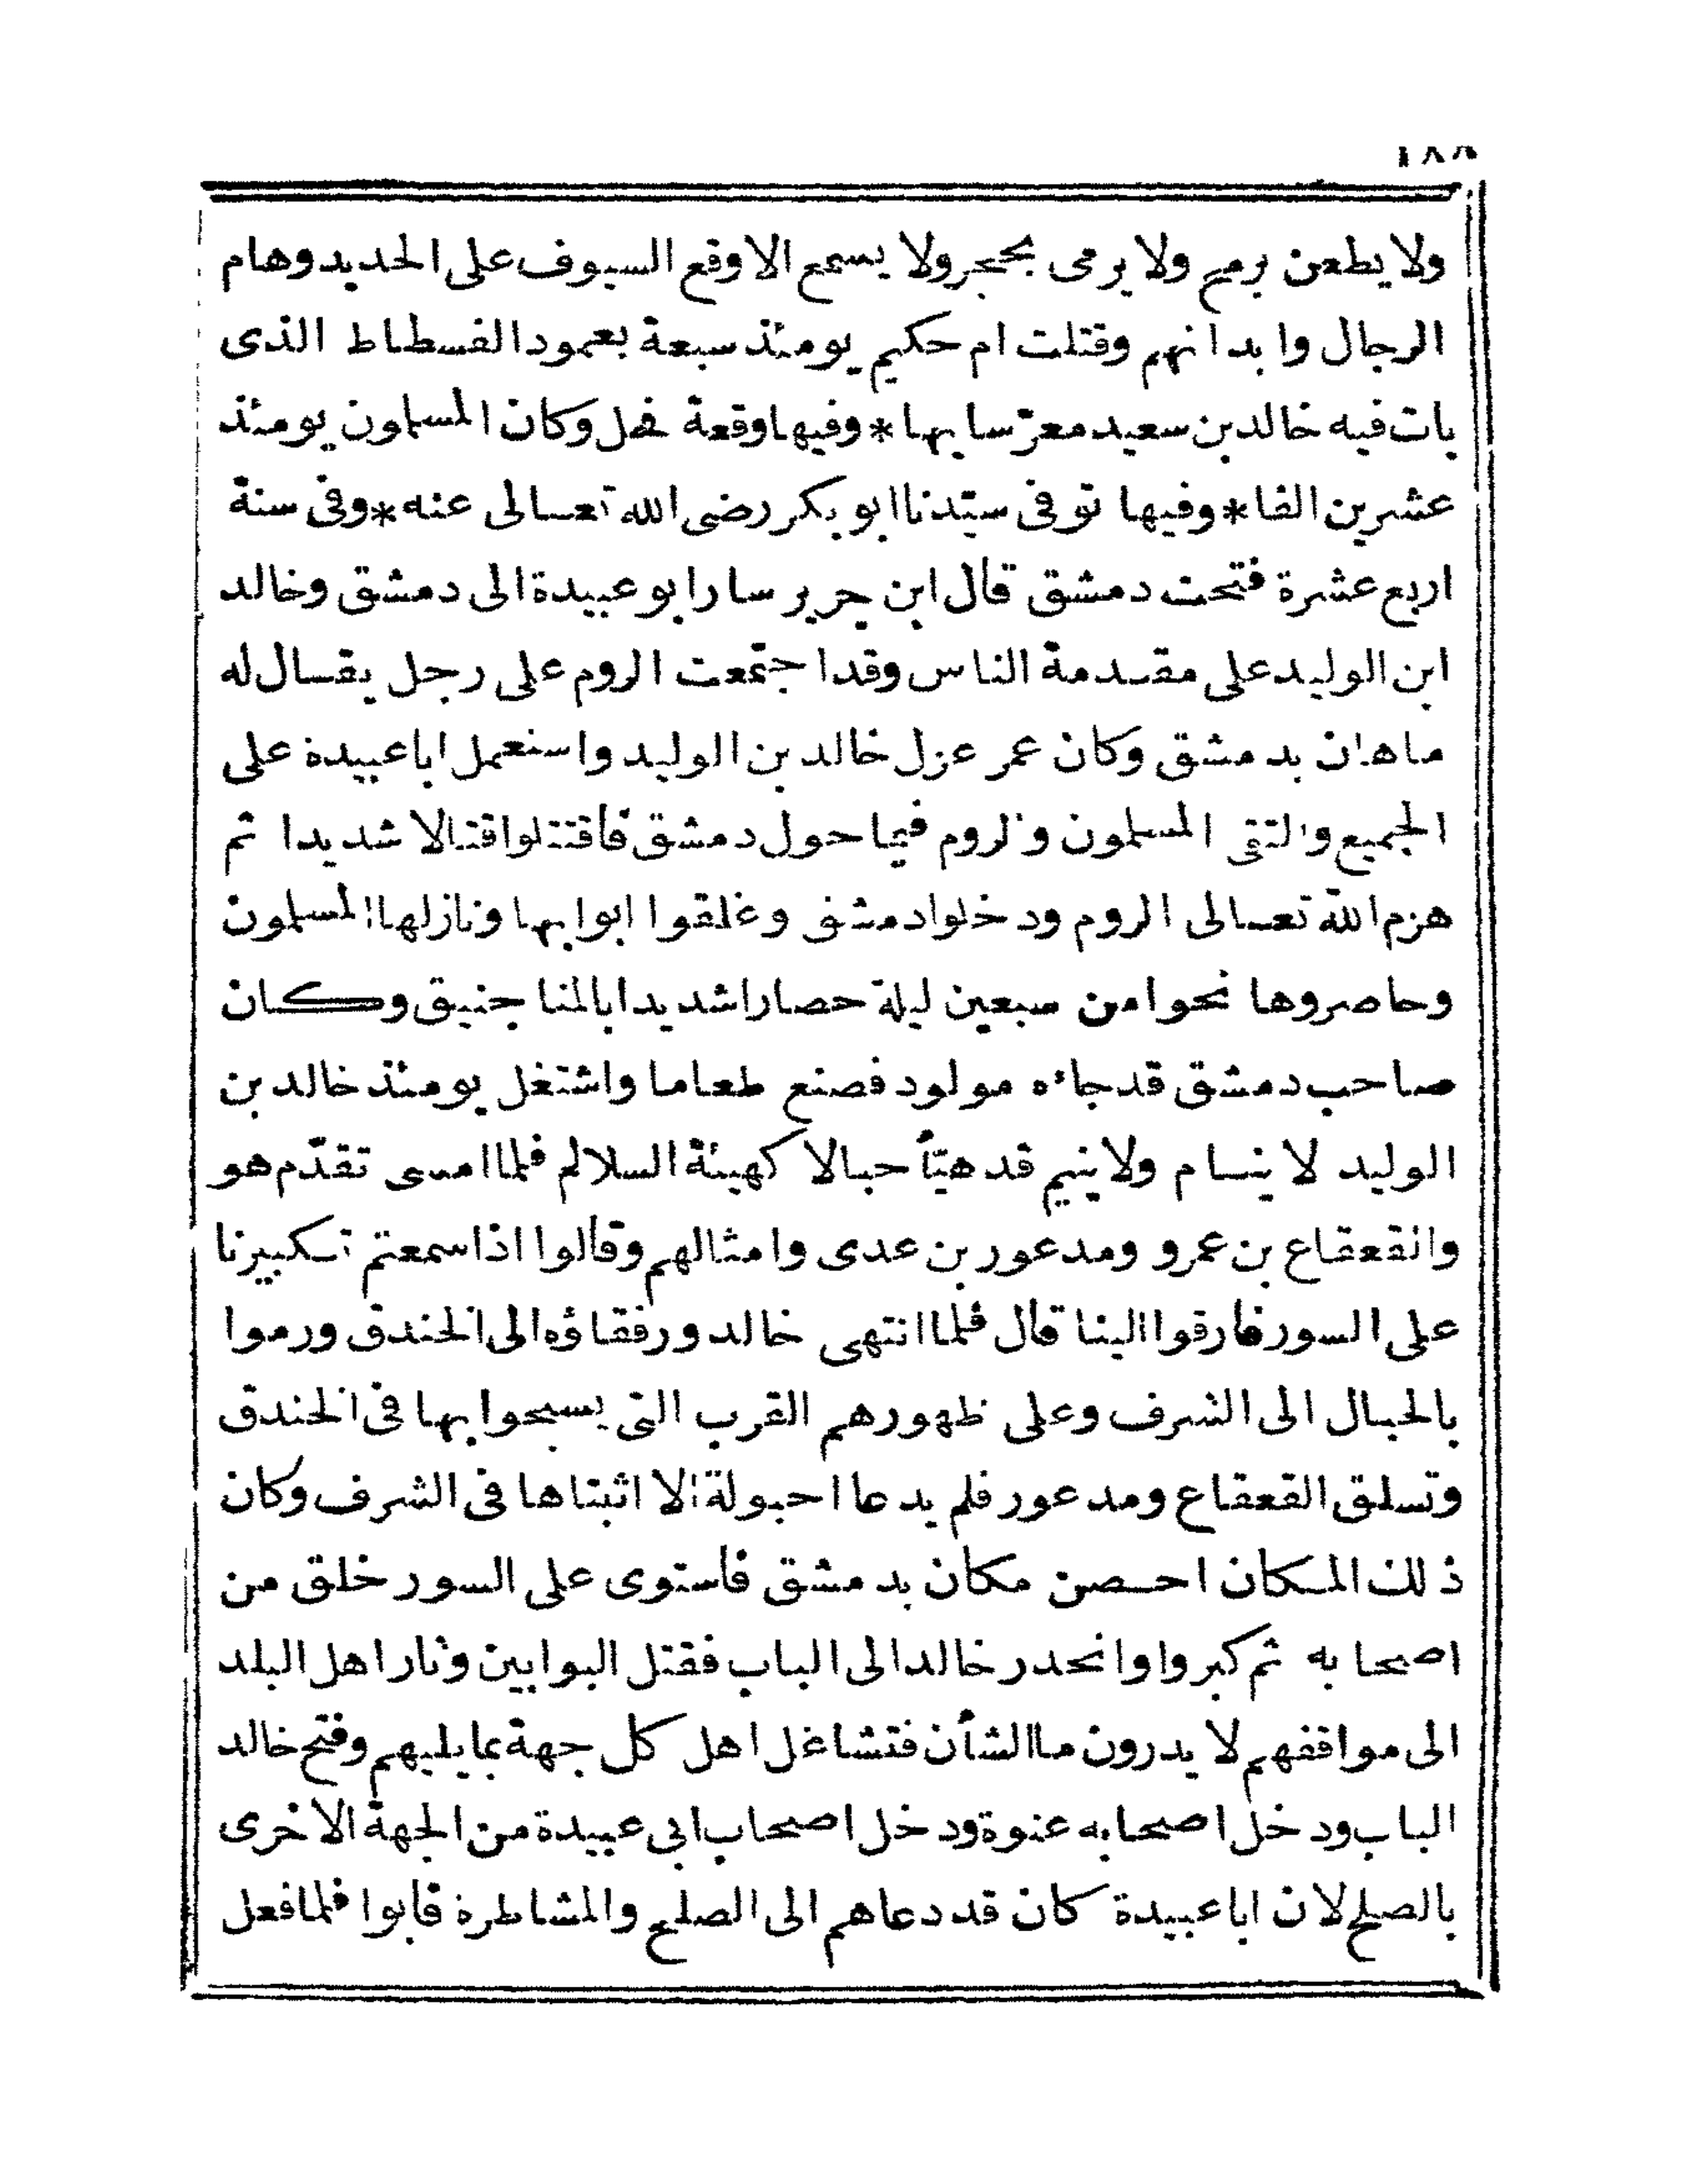 ١٨٨
ولا يطعن برمح ولا يرمى بحجر ولا يسمع الا وقع السيوف على الحديد وهام
الرجال وابدانهم وقتلت ام حكيم يومئذ سبعة بعمود الفسطاط الذى
بات فيه خالد بن سعيد معرّسا بها * وفيها وقعة فحل وكان المسلمون يومئذ
عشرين الفا * وفيها توفى سيّدنا ابو بكر رضى الله تعالى عنه * وفى سنة
اربع عشرة فتحت دمشق قال ابن جرير سار ابو عبيدة الى دمشق وخالد
ابن الوليد على مقدمة الناس وقد اجتمعت الروم على رجل يقال له
ماهان بدمشق وكان عمر عزل خالد بن الوليد واستعمل ابا عبيدة على
الجميع والتقى المسلمون والروم فيما حول دمشق فاقتتلوا قتالا شديدا ثم
هزم الله تعالى الروم ودخلوا دمشق وغلقوا ابوابها ونازلها المسلمون
وحاصروها نحوا من سبعين ليلة حصارا شديدا بالمناجنيق وكان
صاحب دمشق قد جاءه مولود فصنع طعاما واشتغل يومئذ خالد بن
الوليد لا ينام ولا ينيم قد هيّأ حبالا كهيئة السلالم فلما امسى تقدّم هو
والقعقاع بن عمرو ومدعور بن عدى وامثالهم وقالوا اذا سمعتم تكبيرنا
على السور فارقوا الينا قال فلما انتهى خالد ورفقاؤه الى الخندق ورموا
بالحبال الى الشرف وعلى ظهورهم القرب التى يسبحوا بها فى الخندق
وتسلق القعقاع ومدعور فلم يدعا احبولة الا اثبتاها فى الشرف وكان
ذلك المكان احصن مكان بدمشق فاستوى على السور خلق من
اصحابه ثم كبروا وانحدر خالد الى الباب فقتل البوابين وثار اهل البلد
الى مواقفهم لا يدرون ما الشأن فتشاغل اهل كل جهة بما يليهم وفتح خالد
الباب ودخل اصحابه عنوة ودخل اصحاب ابى عبيدة من الجهة الاخرى
بالصلح لان ابا عبيدة كان قد دعاهم الى الصلح والمشاطرة فابوا فلما فعل